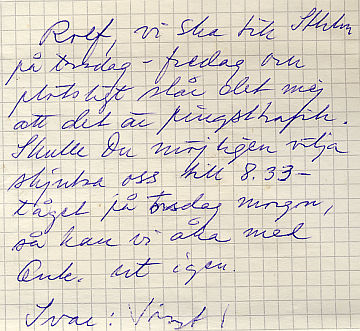 Rolf, vi ska till Sthlm
på torsdag - fredag och
plötsligt slår det mej
att det är pingsttrafik.
Skulle Du möjligen vilja
skjutsa oss till 8.33-
tåget på torsdag morgon,
så kan vi åka med
Enk. ut igen.
Svar: